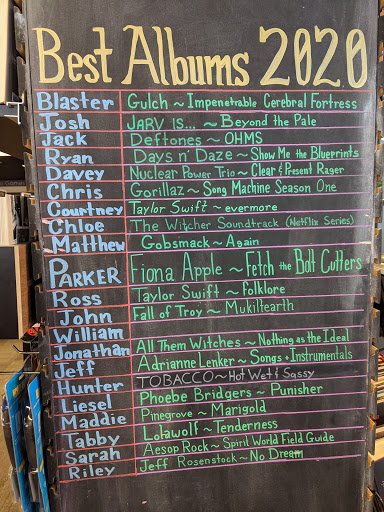 Best Albums 2020
Blaster Gulch ~ Impenetrable Cerebral Fortress
Josh JARV IS... ~ Beyond the Pale
Jack Deftones ~ OHMS
Ryan Days n' Daze ~ Show Me the Blueprints
Davey Nuclear Power Trio ~ Clear & Present Rager
Chris Gorillaz ~ Song Machine Season One
Courtney Taylor Swift ~ evermore
Chloe The Witcher Soundtrack (Netflix Series)
Matthew Gobsmack ~ Again
PARKER Fiona Apple ~ Fetch the Bolt Cutters
Ross Taylor Swift ~ folklore
John Fall of Troy ~ Mukiltearth
William
Jonathan All Them Witches ~ Nothing as the Ideal
Jeff Adrianne Lenker ~ Songs + Instrumentals
Hunter TOBACCO ~ Hot Wet & Sassy
Liesel Phoebe Bridgers ~ Punisher
Maddie Pinegrove ~ Marigold
Tabby Lotawolf ~ Tenderness
Sarah Aesop Rock ~ Spirit World Field Guide
Riley Jeff Rosenstock ~ No Dream